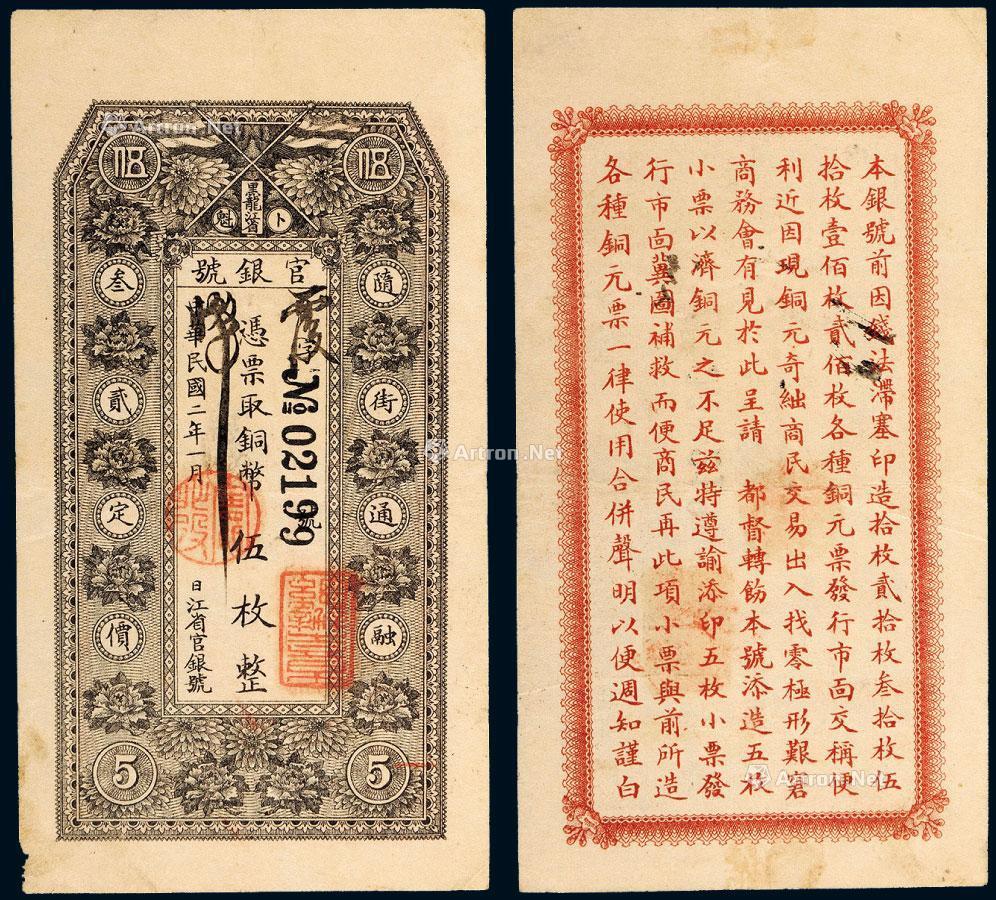 伍
伍
黑龍江省
卜魁
官銀號
隨街通融
叁貳定價
憑票取銅幣伍枚整
№02199
號
中華民國二年一月
日江省官銀號
5
5
本銀號前因錢法滯塞印造拾枚貳拾枚叁拾枚伍
拾枚壹佰枚貳佰枚各種銅元票發行市面交稱便
利近因現銅元奇絀商民交易出入找零極形艱窘
商務會有見於此呈請 都督轉飭本號添造五枚
小票以濟銅元之不足茲特遵諭添印五枚小票發
行市面冀圖補救而便商民再此項小票與前所造
各種銅元票一律使用合併聲明以便週知謹白
Artron.Net
Artron.Net
Artron.Net
Artron.Net